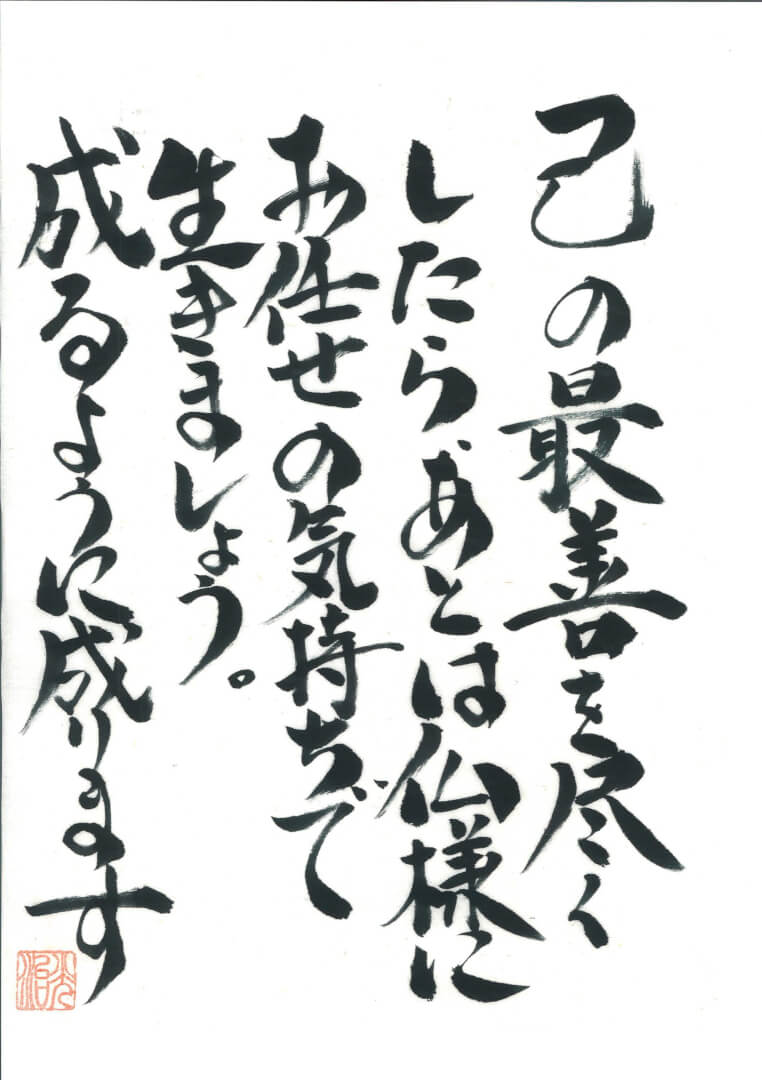 己の最善を尽く
したら、あとは仏様に
お任せの気持ちで
生きましょう。
成るように成ります